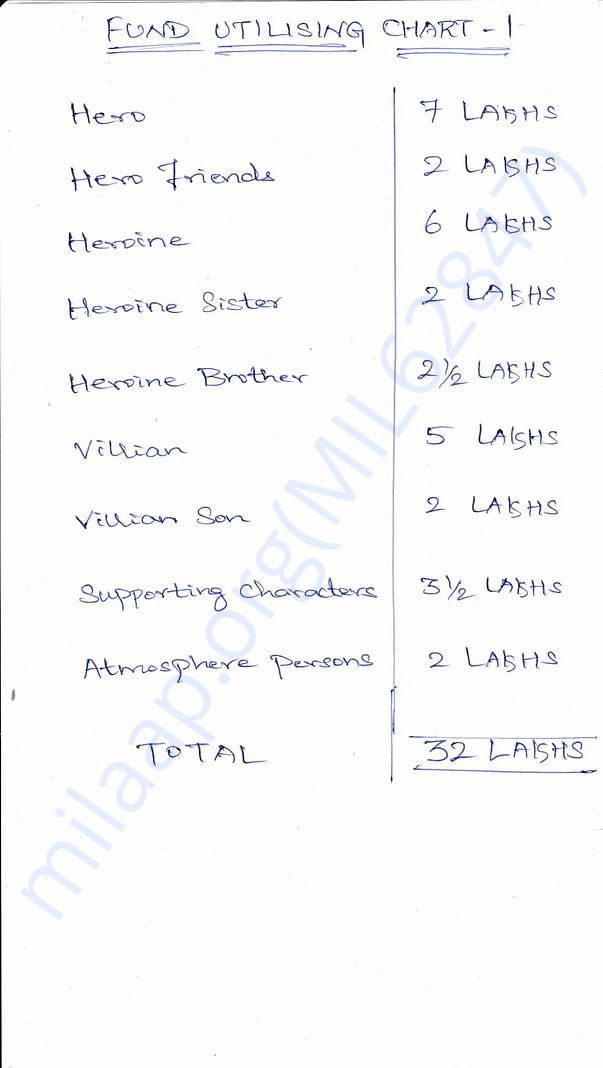 FUND UTILISING CHART - 1
Hero 7 LAKHS
Hero Friends 2 LAKHS
Heroine 6 LAKHS
Heroine Sister 2 LAKHS
Heroine Brother 2 1/2 LAKHS
Villian 5 LAKHS
Villian Son 2 LAKHS
Supporting Characters 3 1/2 LAKHS
Atmosphere Persons 2 LAKHS
TOTAL 32 LAKHS
milaap.org(MIL62847)